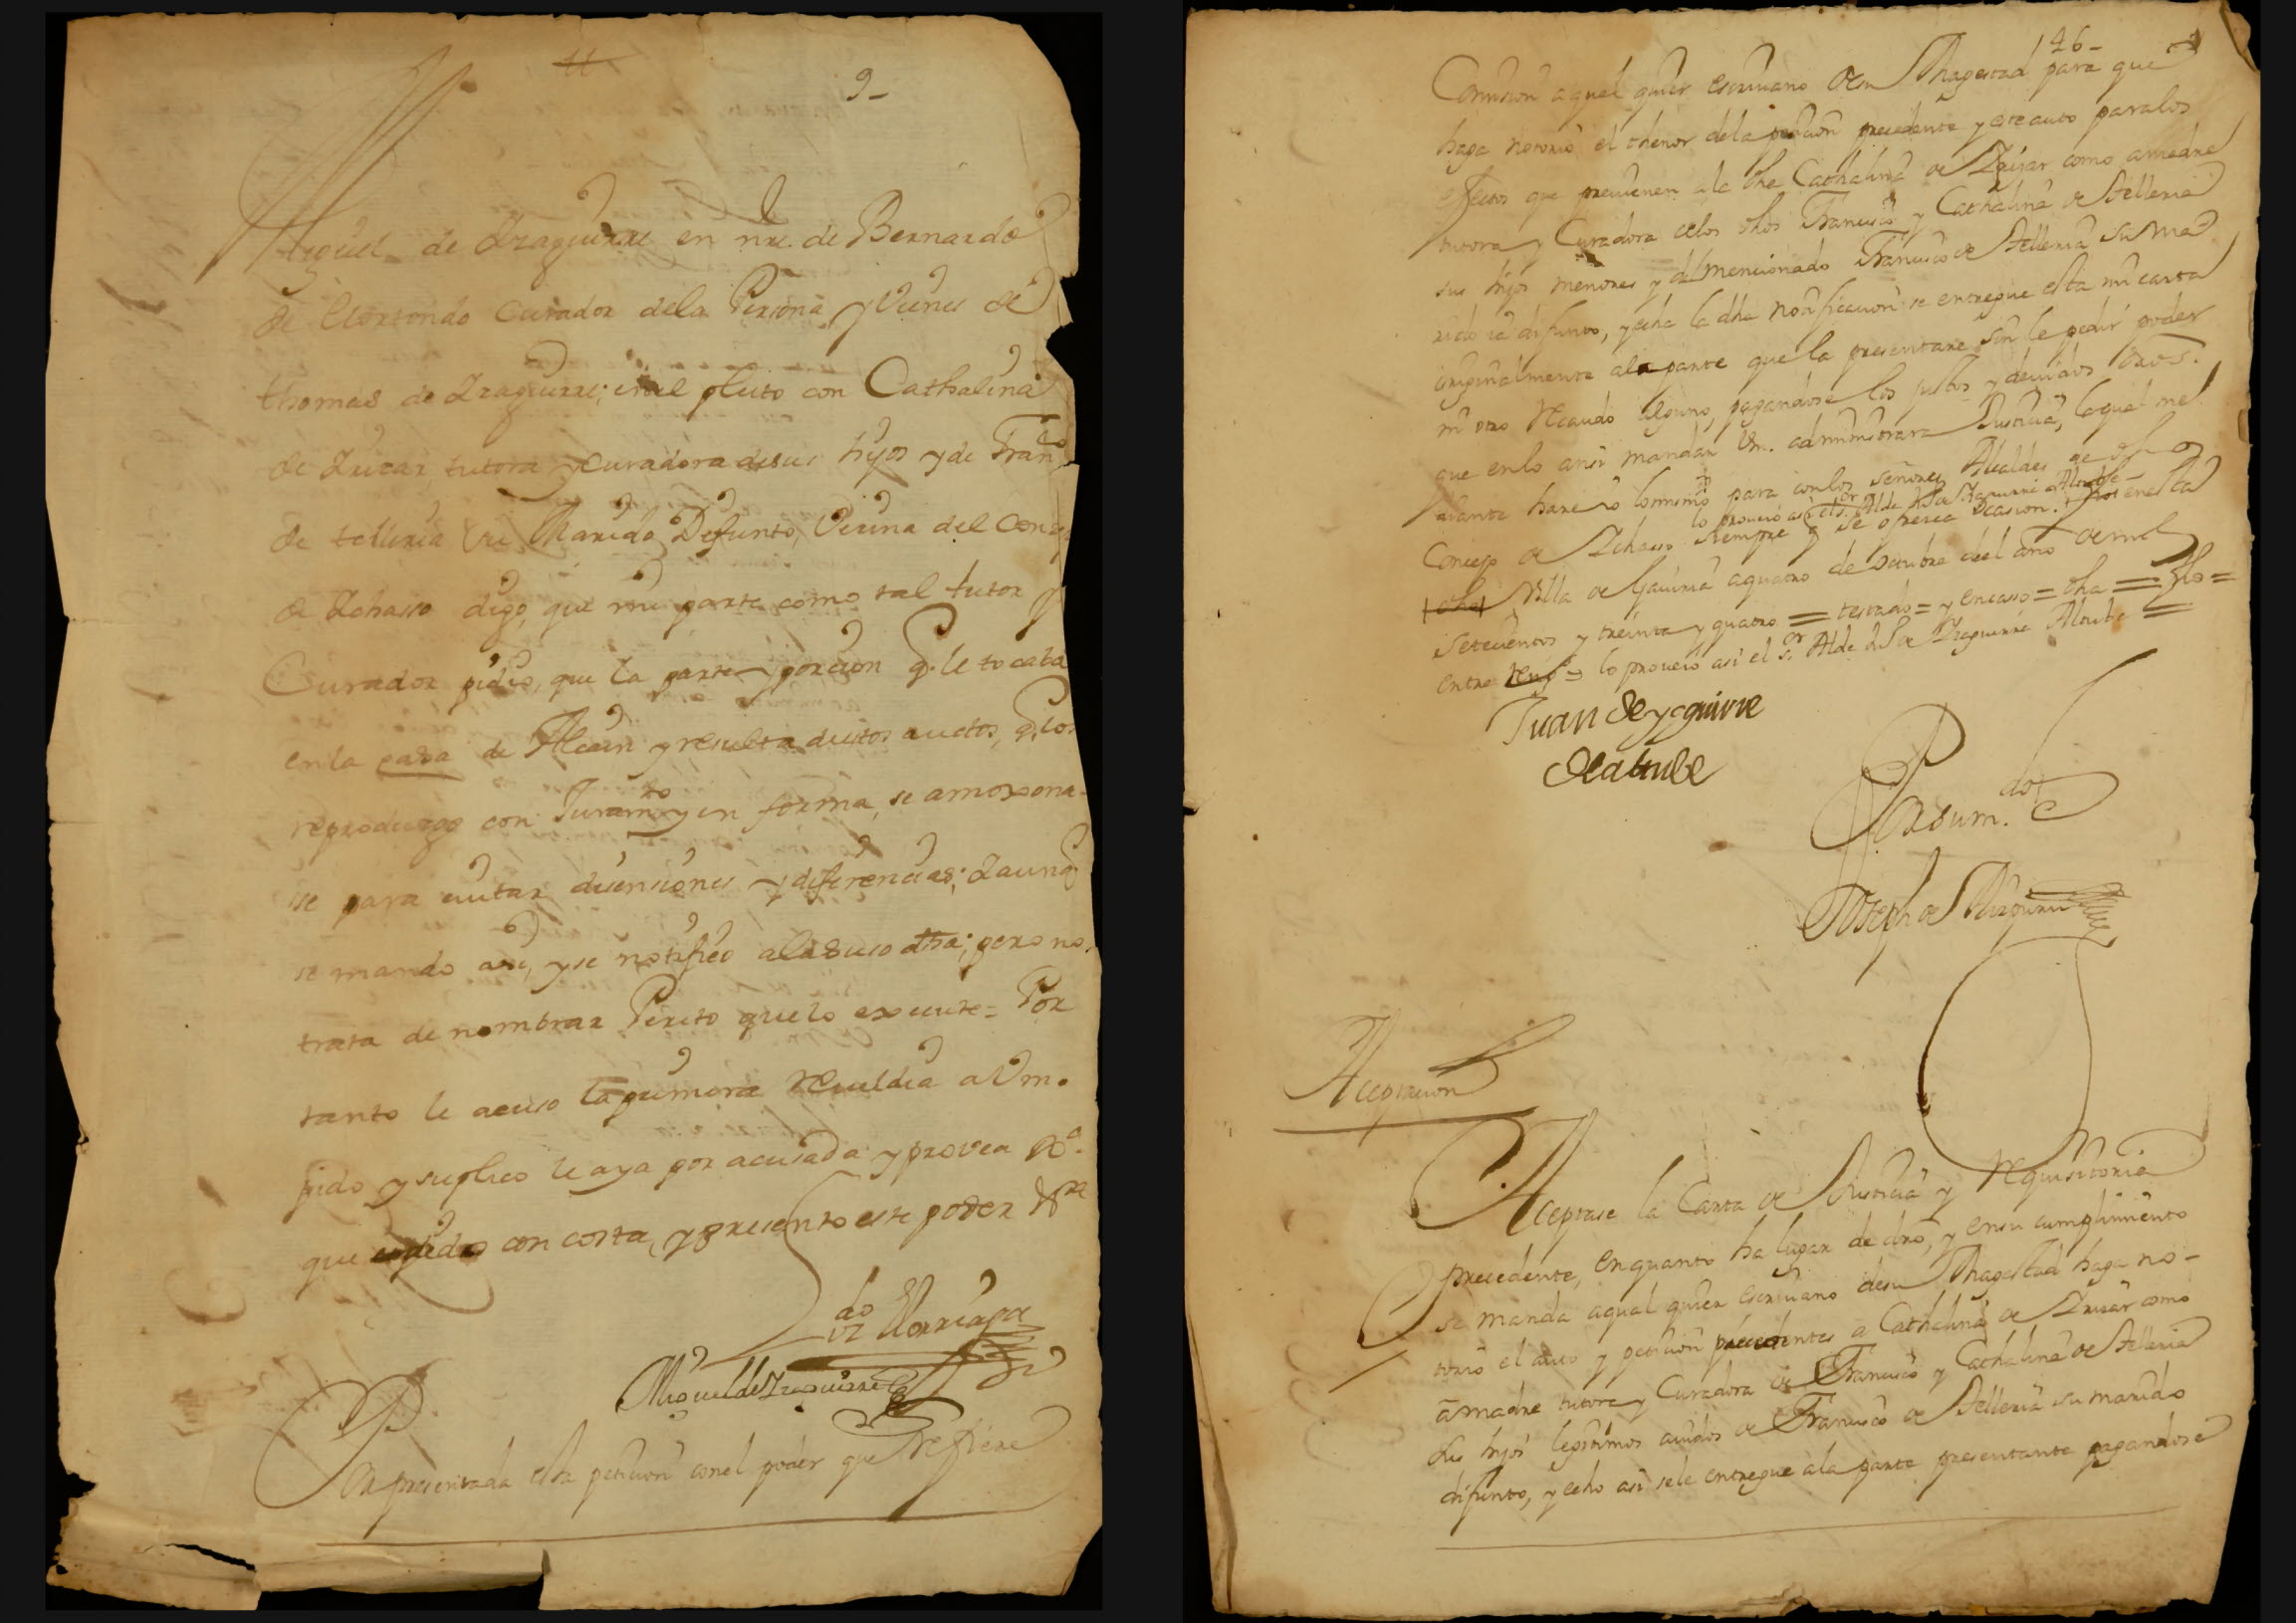 9-
Miguel de Izaguirre en nre. de Bernardo
de Elorrondo Curador dela Persona y Vienes de
thomas de Izaguirre; en el pleito con Cathalina
de Irizar, tutora y curadora de sus hijos y de Franco
de telleria su Marido Defunto, Vecina del Conzejo
de Ichasso digo, que mi parte como tal tutor y
Curador pidio, que la parte y porcion q. le tocaba
en la casa de Alcain y resulta destos auctos, q. los
reproduzgo con Juramto y en forma, se amoxona-
se para evitar disensiones y diferencias; Iaunq
se mando asi, y se notifico a la suso dha; pero no
trata de nombrar Perito que lo execute = Por
tanto le acuso la primera Reueldia a Vm.
pido y suplico le aya por acusada y provea
que pido con costa, y presento este poder
do
Miguel de Izaguirre
Por presentada esta peticion con el poder que refiere
146-
Comision a qual quier escriuano de su Magestad para que
haga notorio el thenor dela peticion precedente y este auto para los
efectos que preuienen a la dha Cathalina de Irizar como a madre
tutora y Curadora delos dhos Francisco y Cathalina de Telleria
sus hijos menores y del mencionado Francisco de Telleria su ma-
rido ia difunto, y echa la dha notificacion se entregue esta mi carta
originalmente a la parte que la presentare sin le pedir poder
ni otro Recaudo alguno, pagandose los justos y deuidos dros.
que en lo ansi mandar Vm. administrara Justicia, la qual me-
diante hare io lo mismo para con los señores Alcaldes de
lo proueio asi el sor Alde Jn de Izaguirre Altube
Concejo de Ichasso siempre q se ofresca ocasion. fho en esta
dha Villa de Gauiria a quatro de octubre del año de mil
setecientos y treinta y quatro = testado = y encasso = dha =
entre reng = lo proueio asi el sor Alde Jn de Izaguirre Altube =
Juan de yzaguirre
de altube
Por su mdo
Joseph de
Aceptacion
Aceptase la Carta de Justicia y Requisitoria
precedente, en quanto ha lugar de dro, y en su cumplimiento
se manda a qual quier escriuano de su Magestad haga no-
torio el auto y peticion precedentes a Cathalina de Irizar como
a madre tutora y Curadora de Francisco y Cathalina de Telleria
sus hijos legitimos auidos de Francisco de Telleria su marido
difunto, y echo asi se le entregue a la parte presentante pagandose